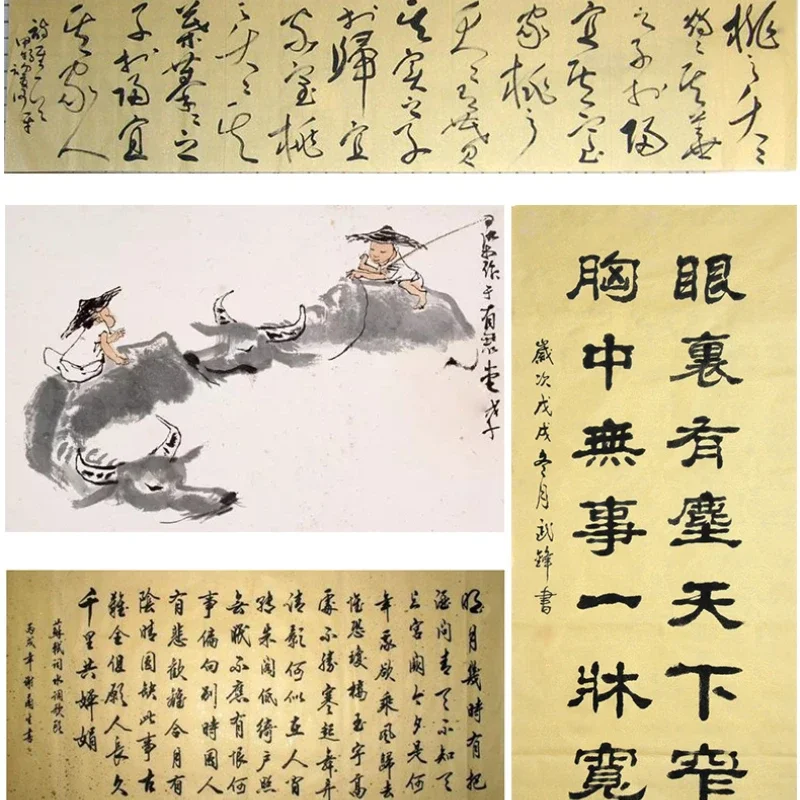 桃之夭〻
灼〻其華
之子于歸
宜其室
家桃之
夭〻有蕡
其實之子
于歸宜
家室桃
之夭〻其
葉蓁〻之
子于歸宜
其家人
可染作于有君堂
眼裏有塵天下窄
胸中無事一牀寬
歲次戊戌冬月武鋒書
明月幾時有把
酒問青天不知天
上宮闕今夕是何
年我欲乘風歸去
惟恐瓊樓玉宇高
處不勝寒起舞弄
清影何似在人間
轉朱閣低綺戶照
無眠不應有恨何
事偏向別時圓人
有悲歡離合月有
陰晴圓缺此事古
難全但願人長久
千里共嬋娟
蘇軾詞水調歌頭
丙戌年